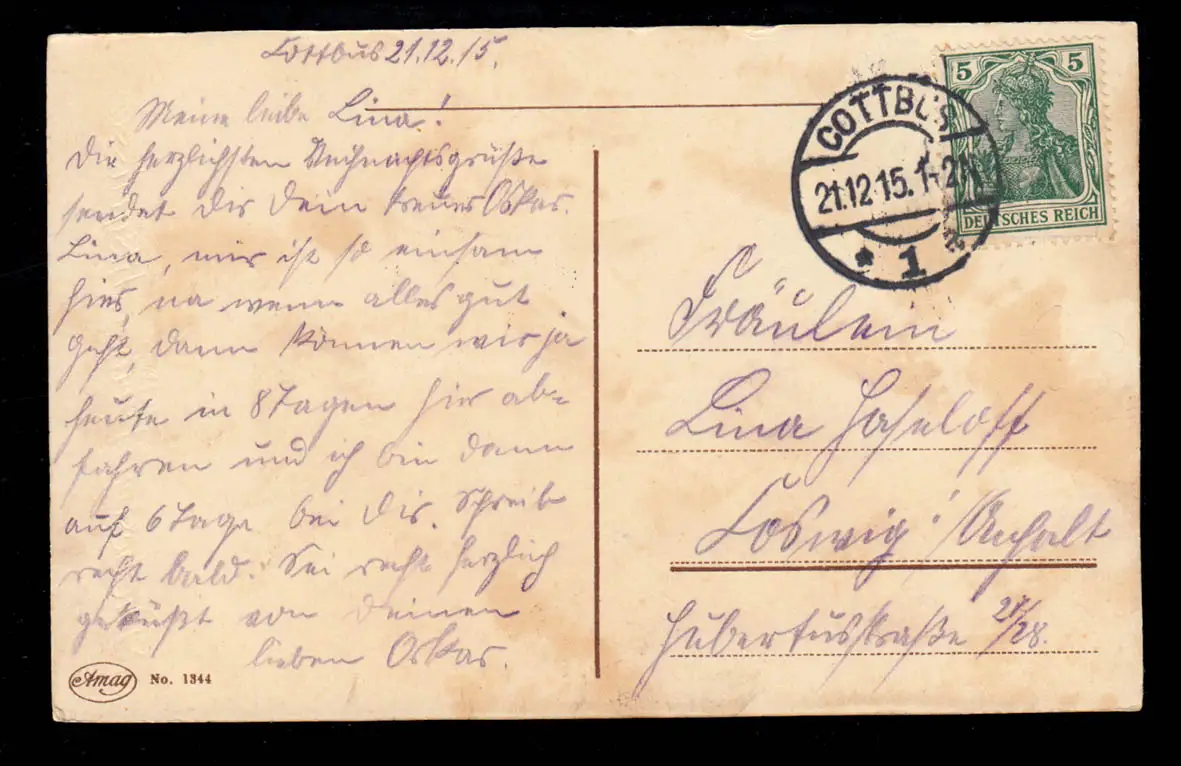 Cottbus 21.12.15.
Meine liebe Lina!
Die herzlichsten Weihnachtsgrüße
sendet Dir Dein treuer Oskar.
Lina, mir ist so einsam
hier, na wenn alles gut
geht, dann können wir ja
heute in 8 Tagen hier ab-
fahren und ich bin dann
auf 6 Tage bei Dir. Schreib
recht bald. Sei recht herzlich
geküßt von Deinem
lieben Oskar.
Amag No. 1344
5 5
DEUTSCHES REICH
COTTBUS
21.12.15. 1-2N
* 1
Fräulein
Lina Haseloff
Coswig i/Anhalt
Hubertusstraße 27/28.